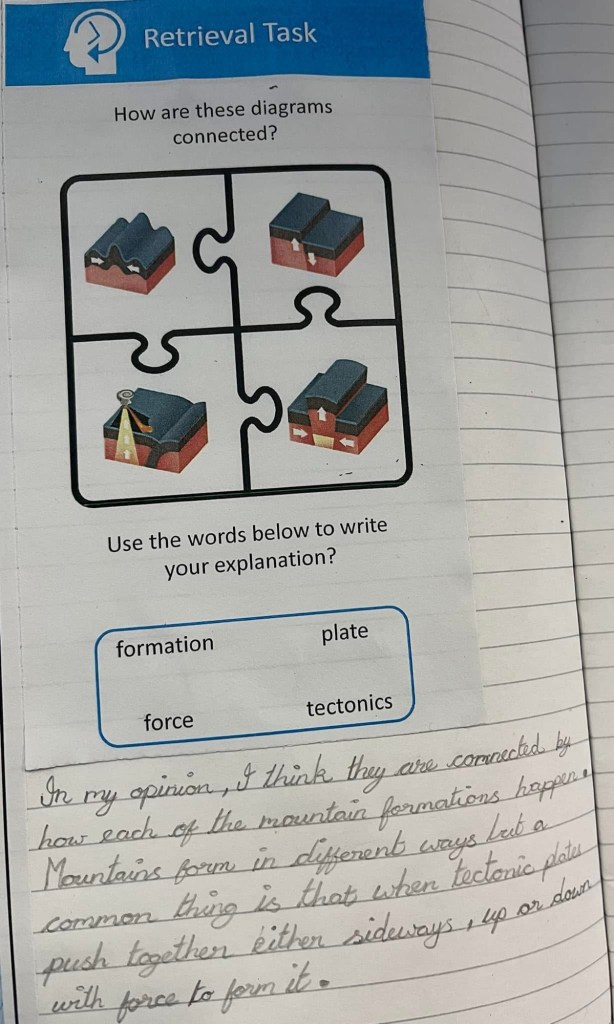 Retrieval Task
How are these diagrams
connected?
Use the words below to write
your explanation?
formation plate
force tectonics
In my opinion, I think they are connected by
how each of the mountain formations happen.
Mountains form in different ways but a
common thing is that when tectonic plates
push together either sideways, up or down
with force to form it.